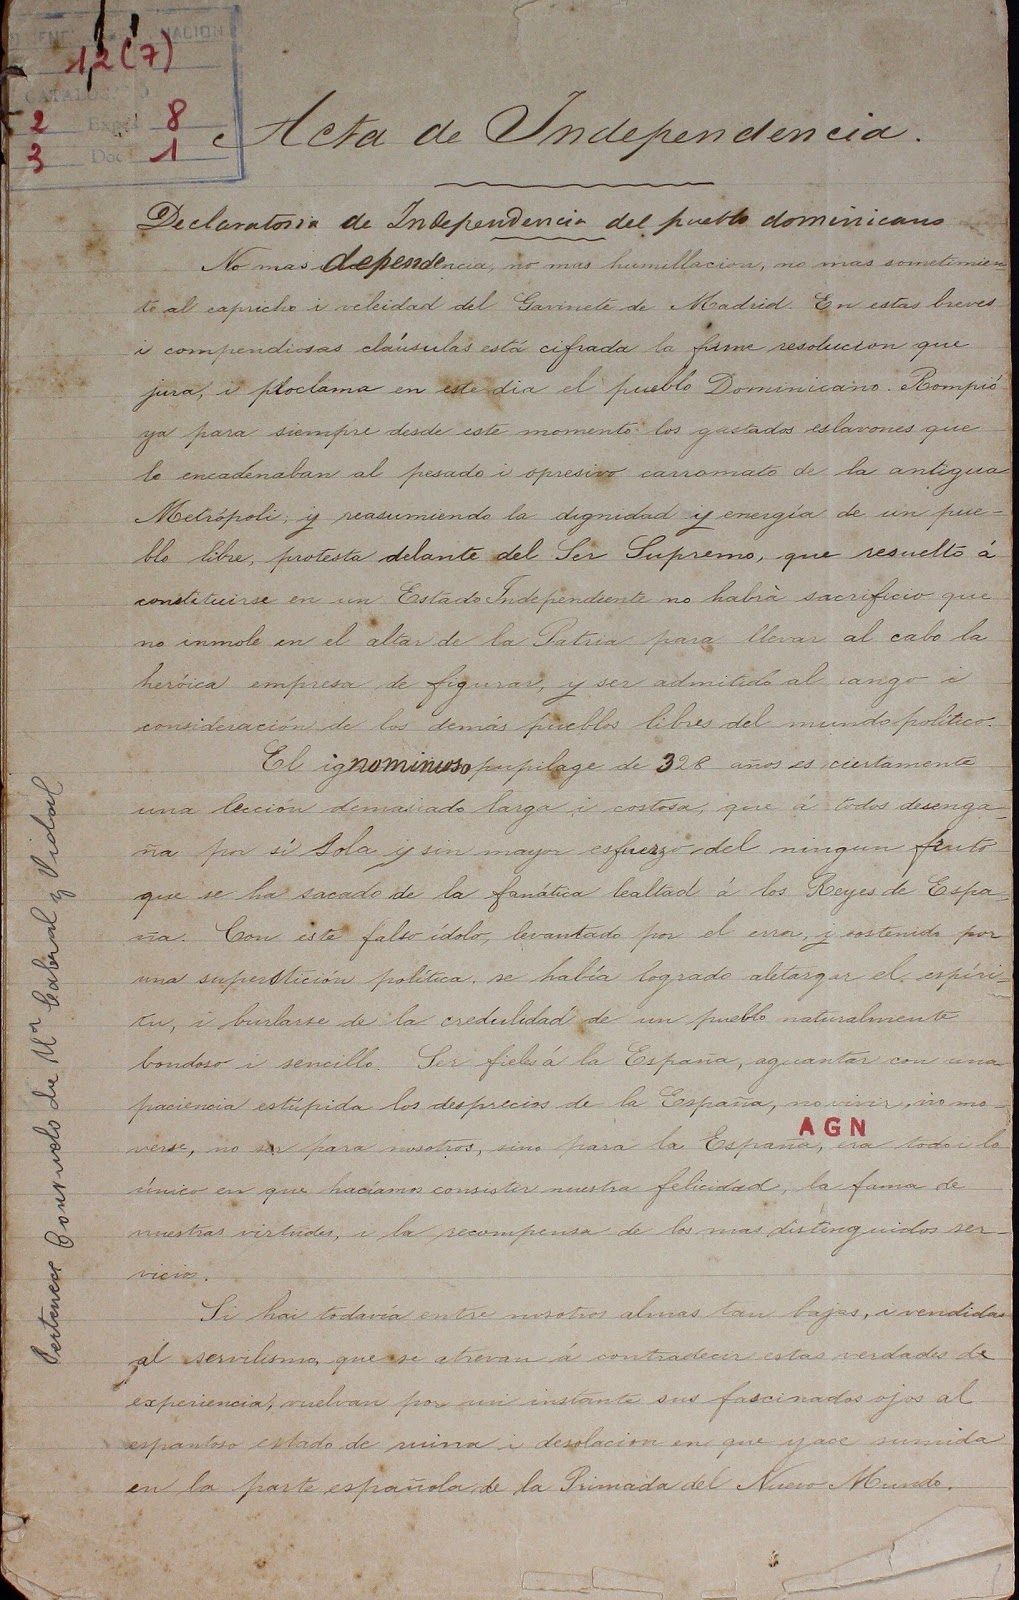 NACION
12(7)
2 Exp 8
3 Doc 1
Acta de Independencia.
Declaratoria de Independencia del pueblo dominicano
No mas dependencia, no mas humillacion, no mas sometimien-
to al capricho i veleidad del Gavinete de Madrid. En estas breves
i compendiosas cláusulas está cifrada la firme resolucion que
jura, i proclama en este dia el pueblo Dominicano. Rompió
ya para siempre desde este momento los gastados eslavones que
lo encadenaban al pesado i opresivo carromato de la antigua
Metrópoli; y reasumiendo la dignidad y energía de un pue-
blo libre, protesta delante del Ser Supremo, que resuelto á
constituirse en un Estado Independiente no habrá sacrificio que
no inmole en el altar de la Patria para llevar al cabo la
heróica empresa de figurar, y ser admitido al rango i
consideración de los demás pueblos libres del mundo político.
El ignominioso pupilage de 328 años es ciertamente
una lección demasiado larga i costosa, que á todos desenga-
ña por sí sola y sin mayor esfuerzo, del ningun fruto
que se ha sacado de la fanática lealtad á los Reyes de Espa-
ña. Con este falso ídolo, levantado por el error, y sostenido por
una superstición política, se había logrado aletargar el espíri-
tu, i burlarse de la credulidad de un pueblo naturalmente
bondoso i sencillo. Ser fieles á la España, aguantar con una
paciencia estúpida los desprecios de la España, no vivir, no mo-
AGN
verse, no ser para nosotros, sino para la España, era todo i lo
único en que hacíamos consistir nuestra felicidad, la fama de
nuestras virtudes, i la recompensa de los mas distinguidos ser-
vicios.
Si hai todavía entre nosotros almas tan bajas, i vendidas
al servilismo, que se atrevan á contradecir estas verdades de
experiencia, vuelvan por un instante sus fascinados ojos al
espantoso estado de ruina i desolacion en que yace sumida
en la parte española de la Primada del Nuevo Mundo.
Pertenece Consuelo de Mª Cabral y Vidal